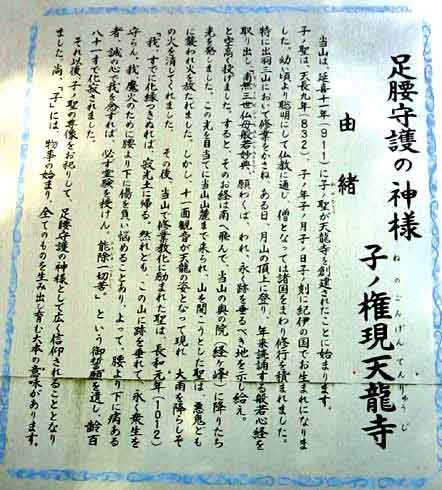 足腰守護の神様
子ノ権現天龍寺
ねのごんげんてんりゅうじ
由緒
当山は、延喜十一年(911)に子ノ聖が天龍寺を創建されたことに始まります。
子ノ聖は、天長九年(832)、子ノ年子ノ月子ノ日子ノ刻に紀伊の国でお生まれになりま
した。幼い頃より聡明にして仏教に通じ、僧となっては諸国をまわり修行を積まれました。
特に出羽三山において修業をかさね、ある日、月山の頂上に登り、年来読誦する般若心経を
取り出し、南無三世仏母般若妙典、願わくば、われ、永く跡を垂るべき地を示し給え。
と空高く投げました。すると、そのお経は南へ飛んで、当山の奥の院(経ヶ峰)に降りたち
光を発しました。この光を目当てに当山山麓まで来られ、山を開こうとした聖は、悪鬼ども
に襲われ火を放たれました。しかし、十一面観音が天龍の姿となって現れ、大雨を降らしそ
の火を消してくれました。その後、当山で修業教化に励まれた聖は、長和元年(1012)
「我、すでに化縁つきぬれば、寂光土に帰る。然れども、この山に跡を垂れて、永く衆生を
守らん。我、魔火のために腰より下に傷を負い悩めることあり。よって、腰より下に病ある
者、誠の心で我を念ずれば、必ず霊験を授けん。能除一切苦。」という御誓願を遺し、齢百
八十一才で化寂されました。
それ以後、子ノ聖の尊像をお祀りして、足腰守護の神様として広く信仰されることとなり
ました。尚、「子」には、物事の始まり、全てのものを生み出し育む大本の意味があります。